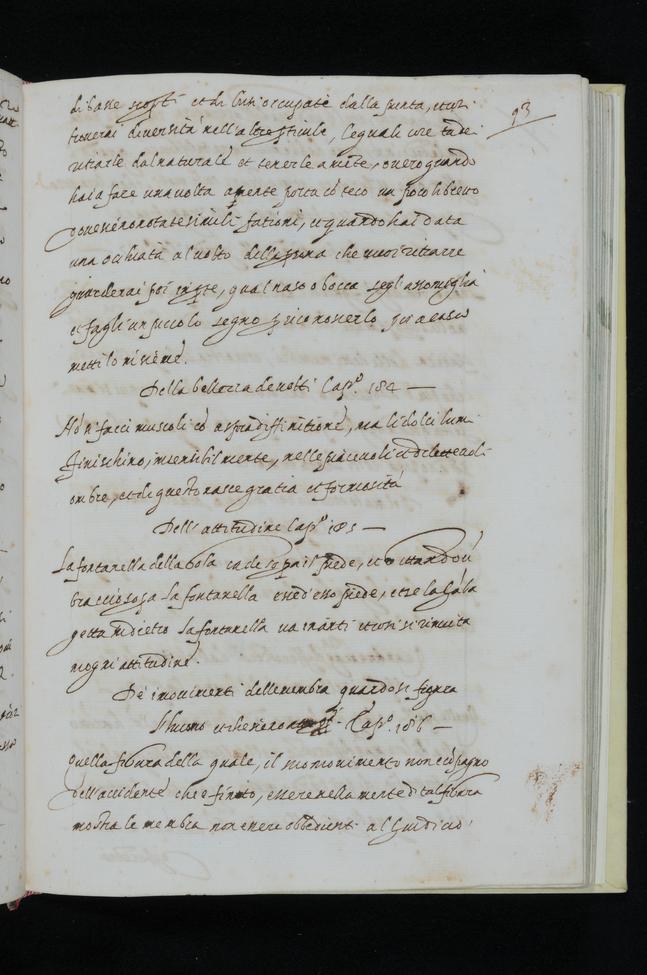 93
di basse scosti et di lusi occupate dalla punta, et cosi
troverai diversità nell'altre particule, le quali cose tu dei
ritrarle dal naturale et tenerle a mente, overo quando
hai a fare una volta a mente porta cō teco un poco libretto
dove sieno notate simili fationi, et quando hai data
una occhiata al volto della persona che vuoi ritrarre
guarderai poi in parte, qual naso o bocca segl' assomiglia
et fagli un piccolo segno per riconoscerlo poi a casa
mettilo insieme.
Della bellezza de volti Cap.º 184 —
Nō si facci muscoli cō aspra diffinitione, ma li dolci lumi
finischino, insensibilmente, nelle piacevoli et dilettevoli
ombre, et di questo nasce gratia et formosità
Dell' attitudine Cap.º 185 —
La fontanella della gola cade sopra il piede, et gittando un
braccio la fontanella esce d'esso piede, et se la gāba
getta in dietro la fontanella va inanti et cosi si rimuta
in ogni attitudine.
De movimenti delle membra quando si figura
l'huomo et che sieno Cap.º 186 —
Quella figura della quale, il movimento non è cōpagno
dell'accidente che è finito, essere nella mente di tal figura
mostra le membra non essere obbedienti al giuditio